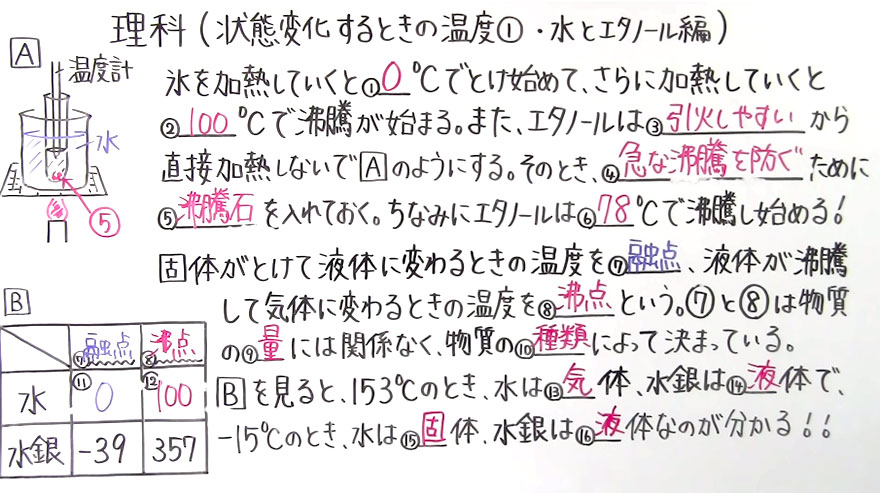 理科(状態変化するときの温度①・水とエタノール編)
A
温度計
水
⑤
氷を加熱していくと①0℃でとけ始めて、さらに加熱していくと
②100℃で沸騰が始まる。また、エタノールは③引火しやすいから
直接加熱しないでAのようにする。そのとき、④急な沸騰を防ぐために
⑤沸騰石を入れておく。ちなみにエタノールは⑥78℃で沸騰し始める!
固体がとけて液体に変わるときの温度を⑦融点、液体が沸騰
して気体に変わるときの温度を⑧沸点という。⑦と⑧は物質
の⑨量には関係なく、物質の⑩種類によって決まっている。
Bを見ると、153℃のとき、水は⑬気体、水銀は⑭液体で、
-15℃のとき、水は⑮固体、水銀は⑯液体なのが分かる!!
B
⑦融点 ⑧沸点
水 ⑪0 ⑫100
水銀 -39 357